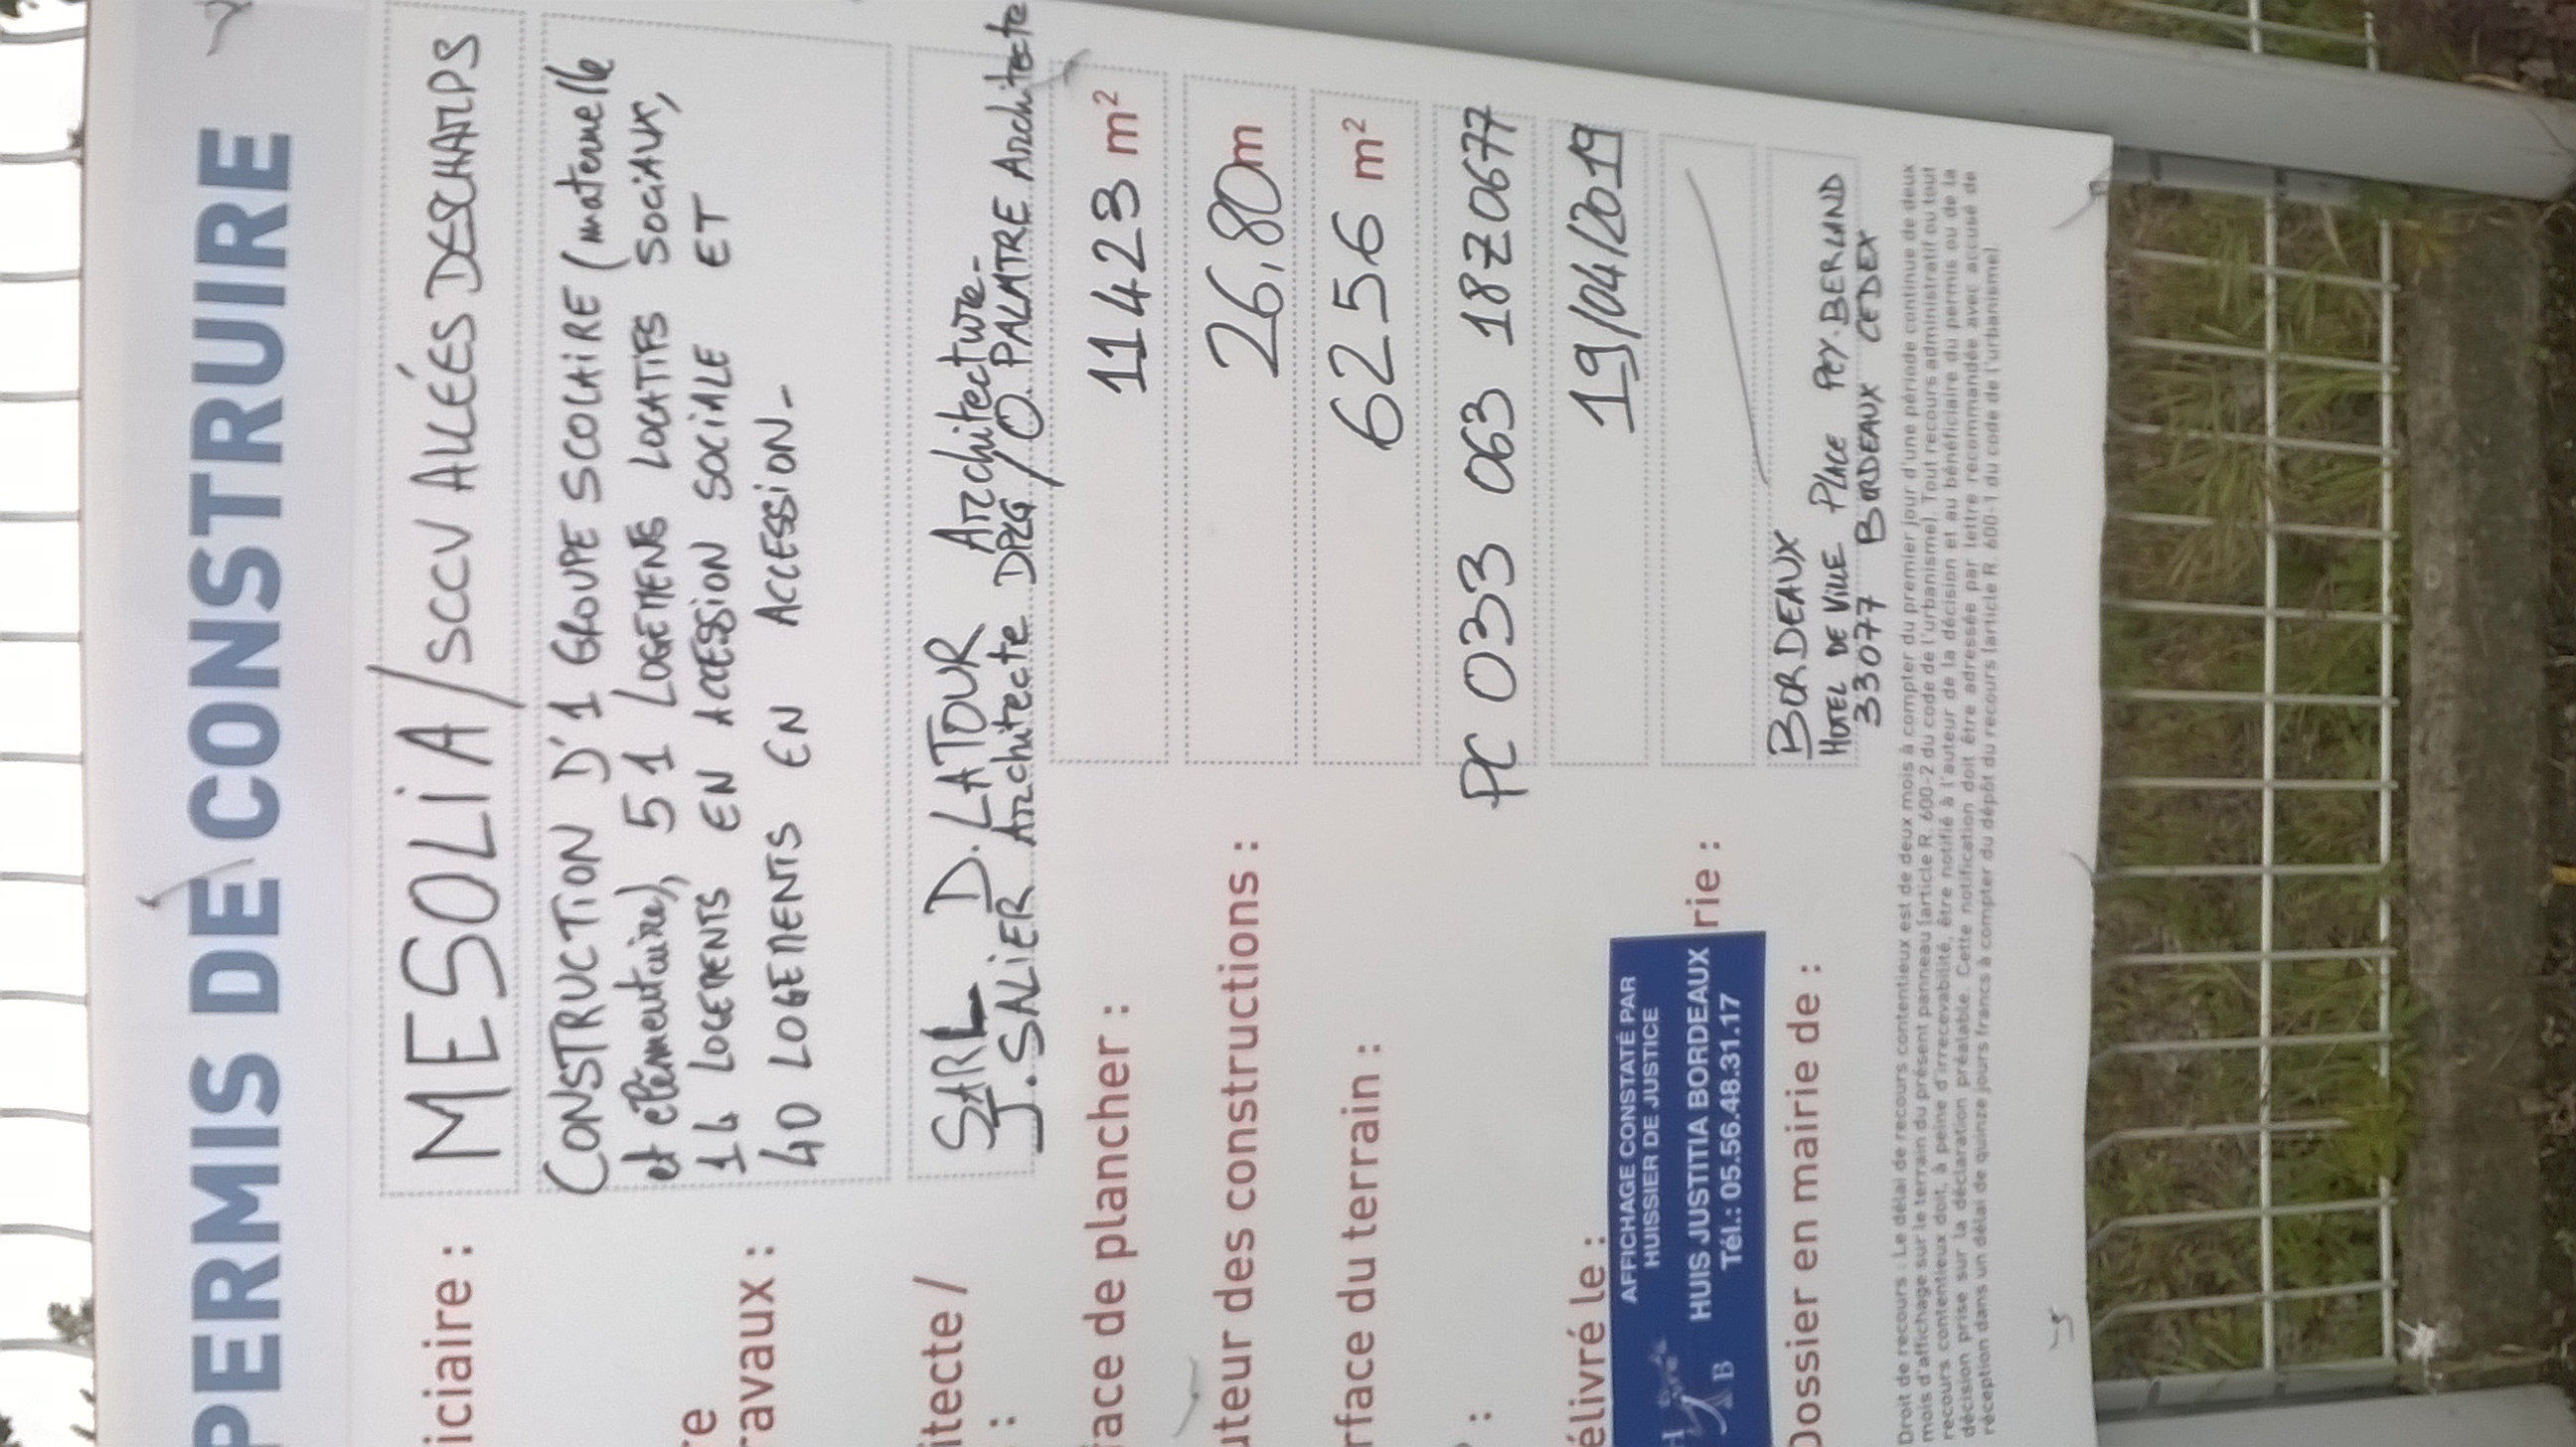 PERMIS DE CONSTRUIRE
iciaire : MESOLIA / SCCV ALLÉES DESCHAMPS
re
ravaux :
CONSTRUCTION D'1 GROUPE SCOLAIRE (maternelle
et élémentaire), 51 LOGEMENS LOCATIFS SOCIAUX,
14 LOGEMENTS EN ACCESSION SOCIALE ET
40 LOGEMENTS EN ACCESSION-
itecte / :
SARL D. LATOUR Architecture-
J. SALIER Architecte DPLG / O. PALMTRE Architecte
ace de plancher : 11423 m²
uteur des constructions : 26,80m
rface du terrain : 6256 m²
: PC 033 063 18Z0677
élivré le : 19/04/2019
rie :
AFFICHAGE CONSTATÉ PAR
HUISSIER DE JUSTICE
HUIS JUSTITIA BORDEAUX
Tél.: 05.56.48.31.17
Dossier en mairie de : BORDEAUX
HOTEL DE VILLE PLACE PEY.BERLAND
33077 BORDEAUX CEDEX
Droit de recours : Le délai de recours contentieux est de deux mois à compter du premier jour d'une période continue de deux
mois d'affichage sur le terrain du présent panneau (article R. 600-2 du code de l'urbanisme). Tout recours administratif ou tout
recours contentieux doit, à peine d'irrecevabilité, être notifié à l'auteur de la décision et au bénéficiaire du permis ou de la
décision prise sur la déclaration préalable. Cette notification doit être adressée par lettre recommandée avec accusé de
réception dans un délai de quinze jours francs à compter du dépôt du recours (article R. 600-1 du code de l'urbanisme).